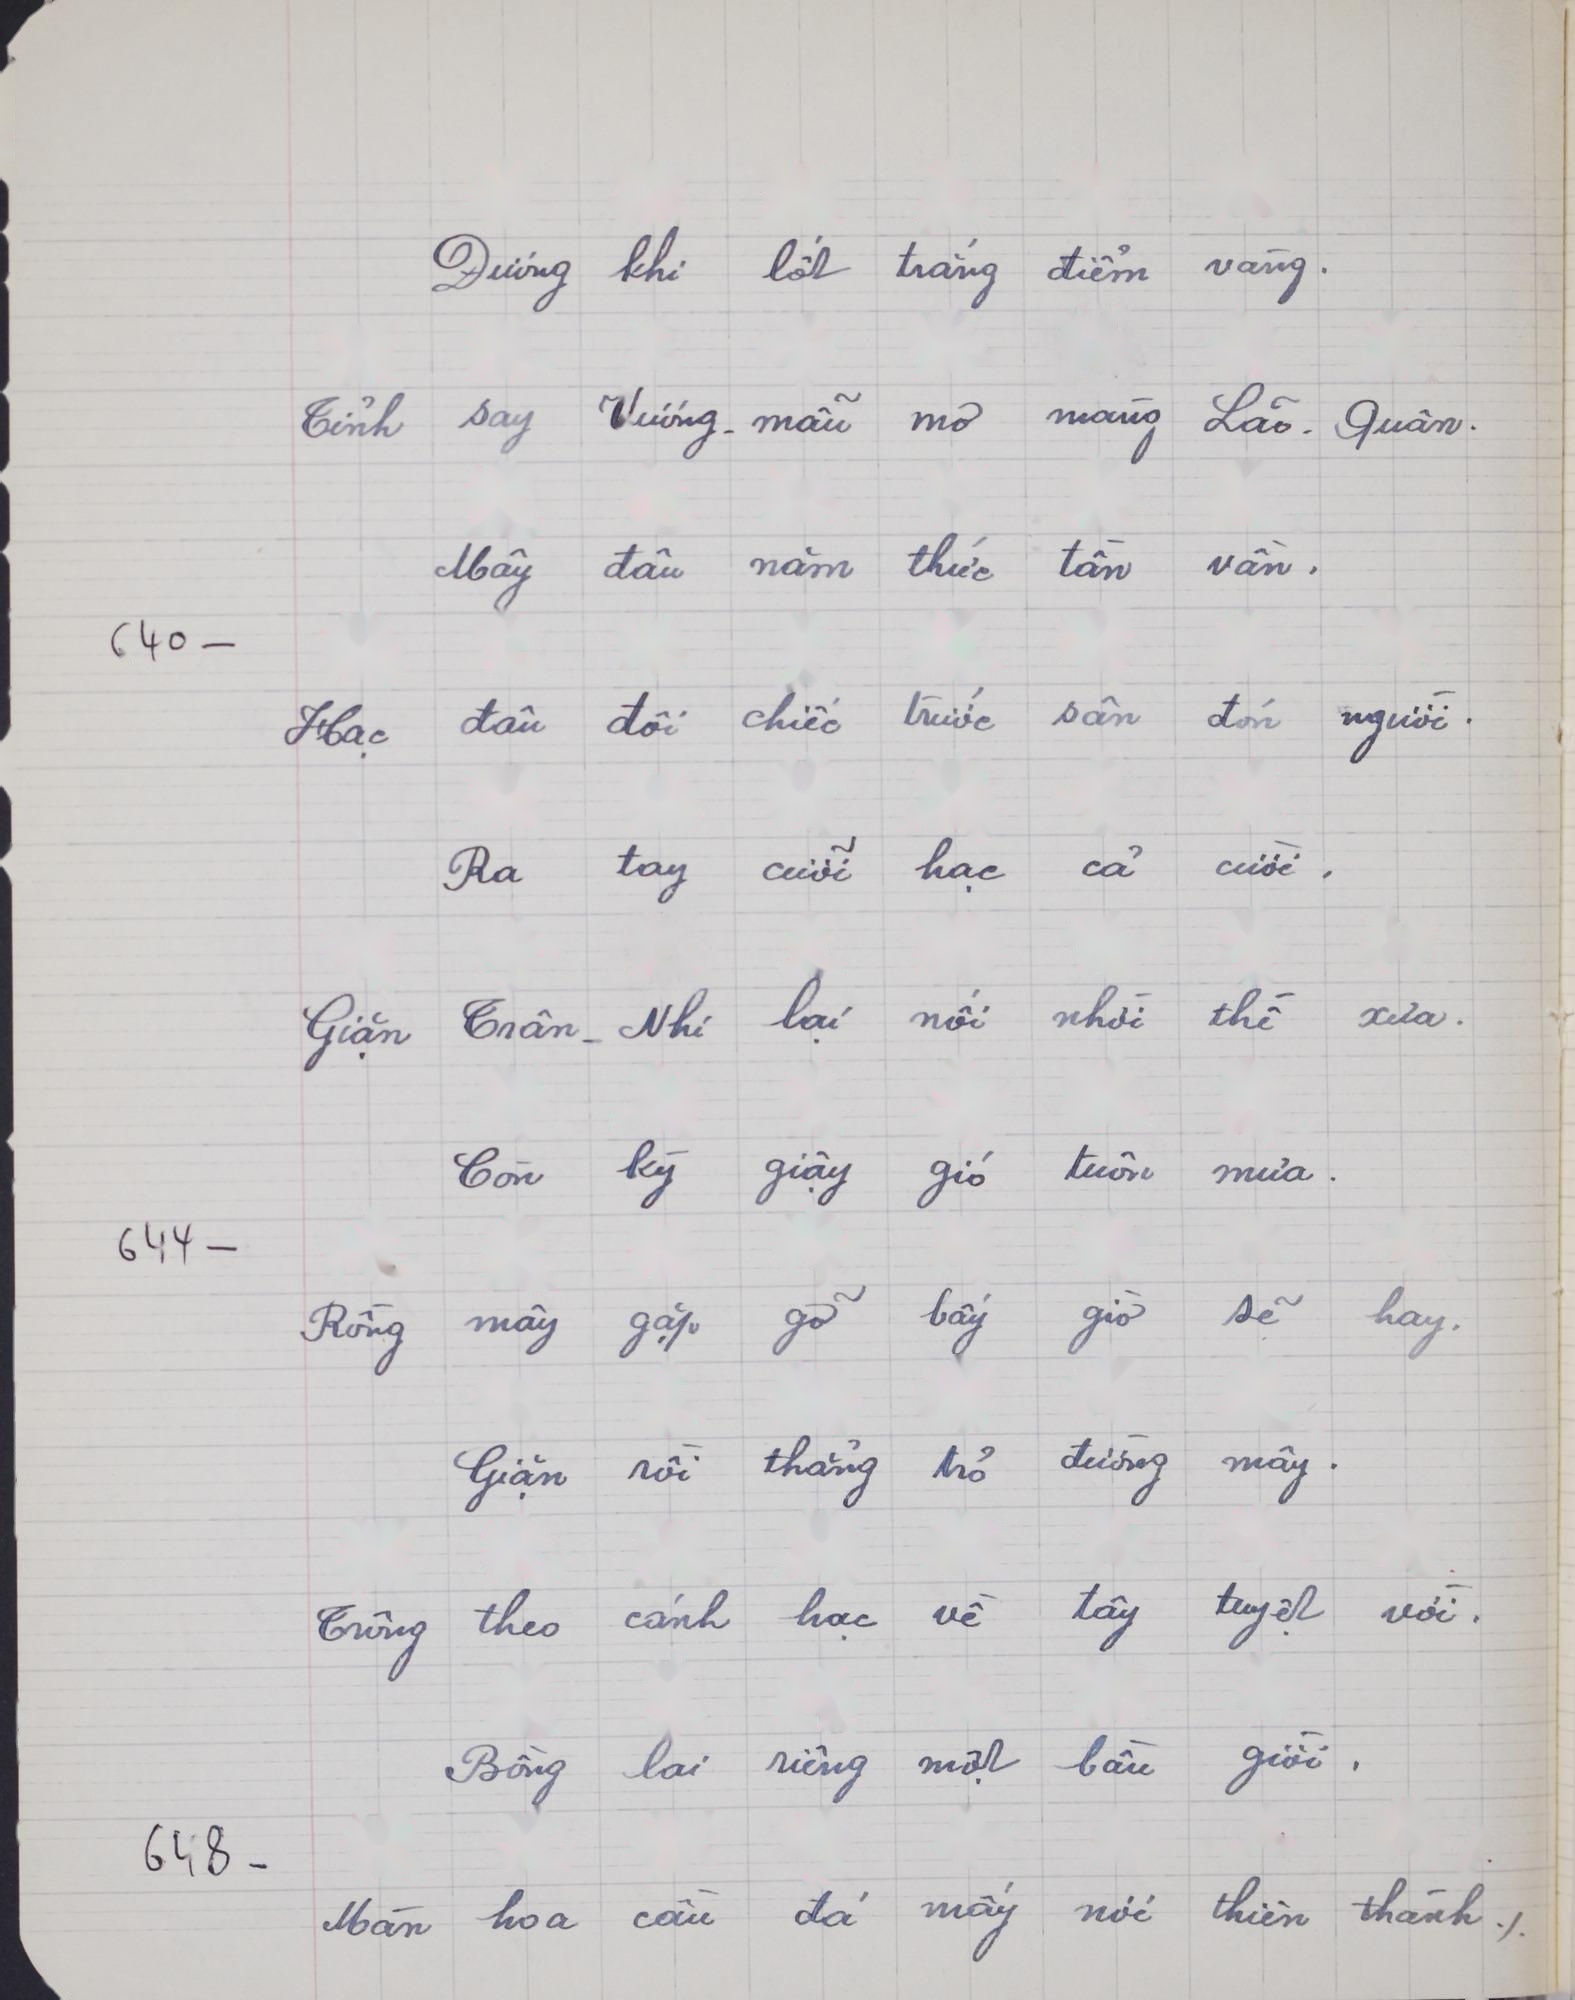 Đương khi lốt trắng điểm vàng.
Tỉnh say Vương-mẫu mơ màng Lão-Quân.
Mây đâu năm thức tần vần.
640 —
Hạc đâu đôi chiếc trước sân đón người.
Ra tay cưỡi hạc cả cười.
Giặn Trân-Nhi lại nối nhời thề xưa.
Còn kỳ giậy gió tuôn mưa.
644 —
Rồng mây gặp gỡ bấy giờ sẽ hay.
Giặn rồi thẳng trỏ đường mây.
Trông theo cánh hạc về tây tuyệt vời.
Bồng lai riêng một bầu giời.
648 -
Màn hoa cầu đá mấy nơi thiên thành ./.